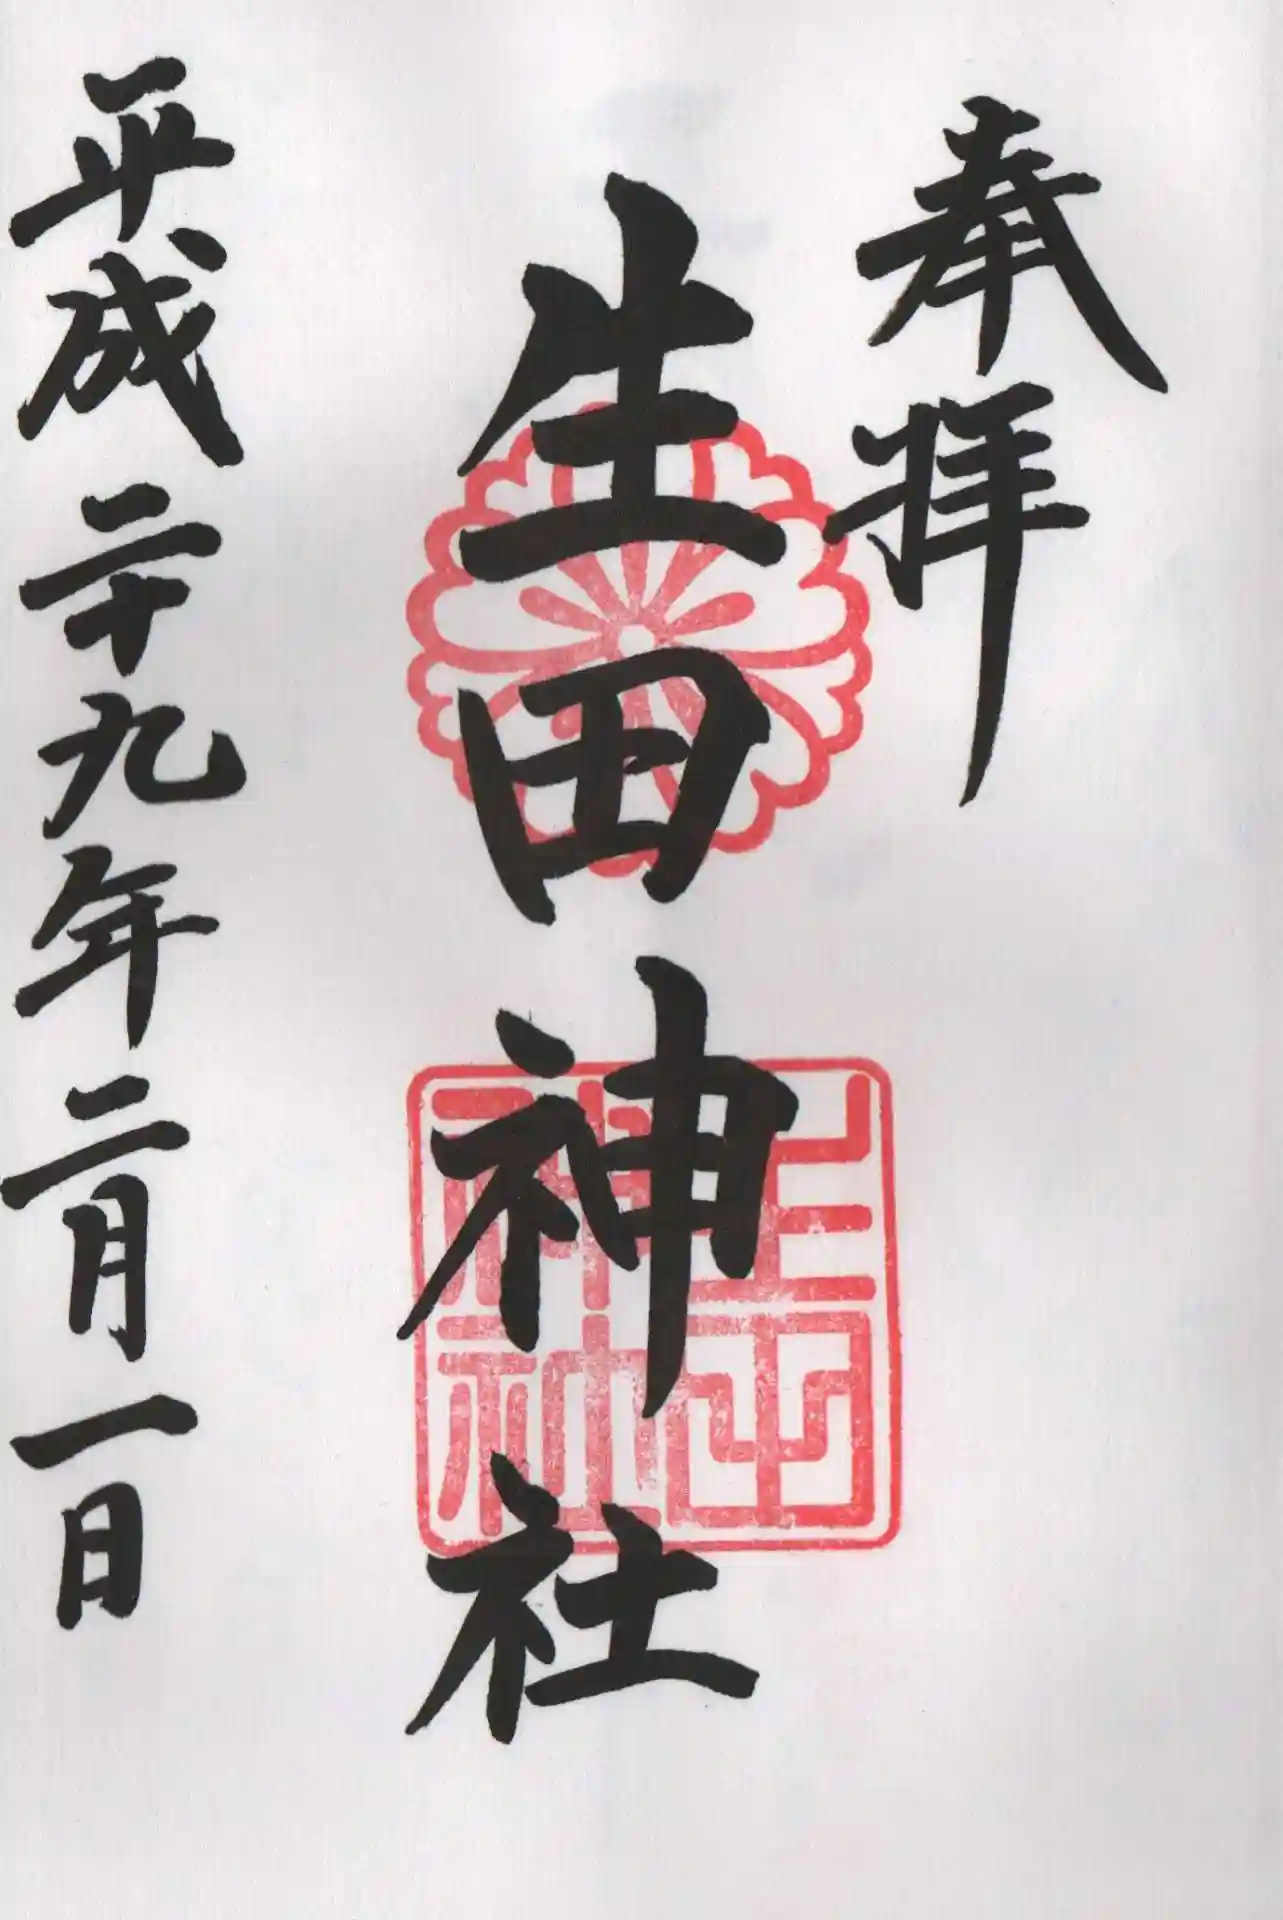 奉拝
生田神社
生田神社
平成二十九年二月一日